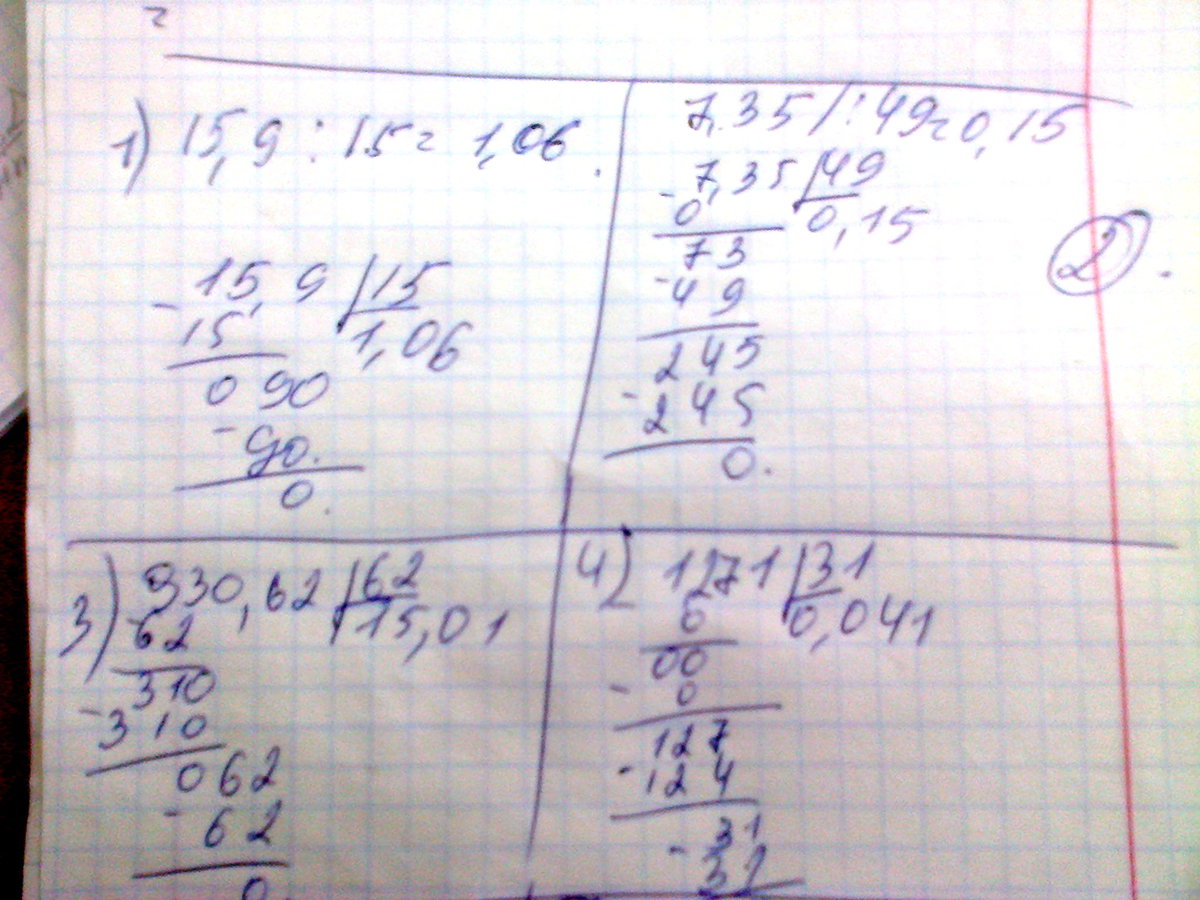 1) 15,9 : 15 = 1,06.
- 15,9 | 15
15 1,06
0 90
- 90.
0.
7,35 : 49 = 0,15
- 7,35 | 49
0 0,15
73
- 49
245
- 245
0.
2.
3) 930,62 | 62
- 62 15,01
310
- 310
062
- 62
0
4) 1271 | 31
0 0,041
00
- 0
127
- 124
- 31
31